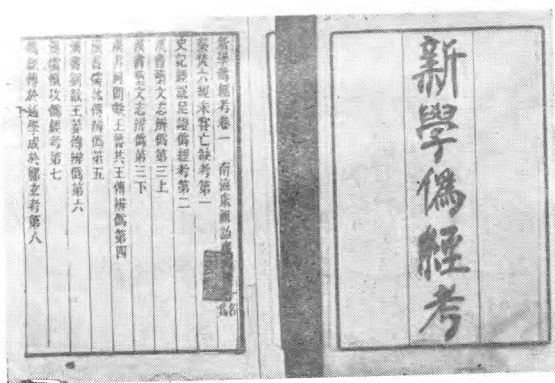 新學僞經考
新學僞經考卷一　南海康
秦焚六經未嘗亡缺考第一
史記經說足證僞經考第二
漢書藝文志辨僞第三上
漢書藝文志辨僞第三下
漢書河間獻王魯共王傳辨僞第四
漢書儒林傳辨僞第五
漢書劉歆王莽傳辨僞第六
漢儒憤攻僞經考第七
僞經傳於通學成於鄭玄考第八